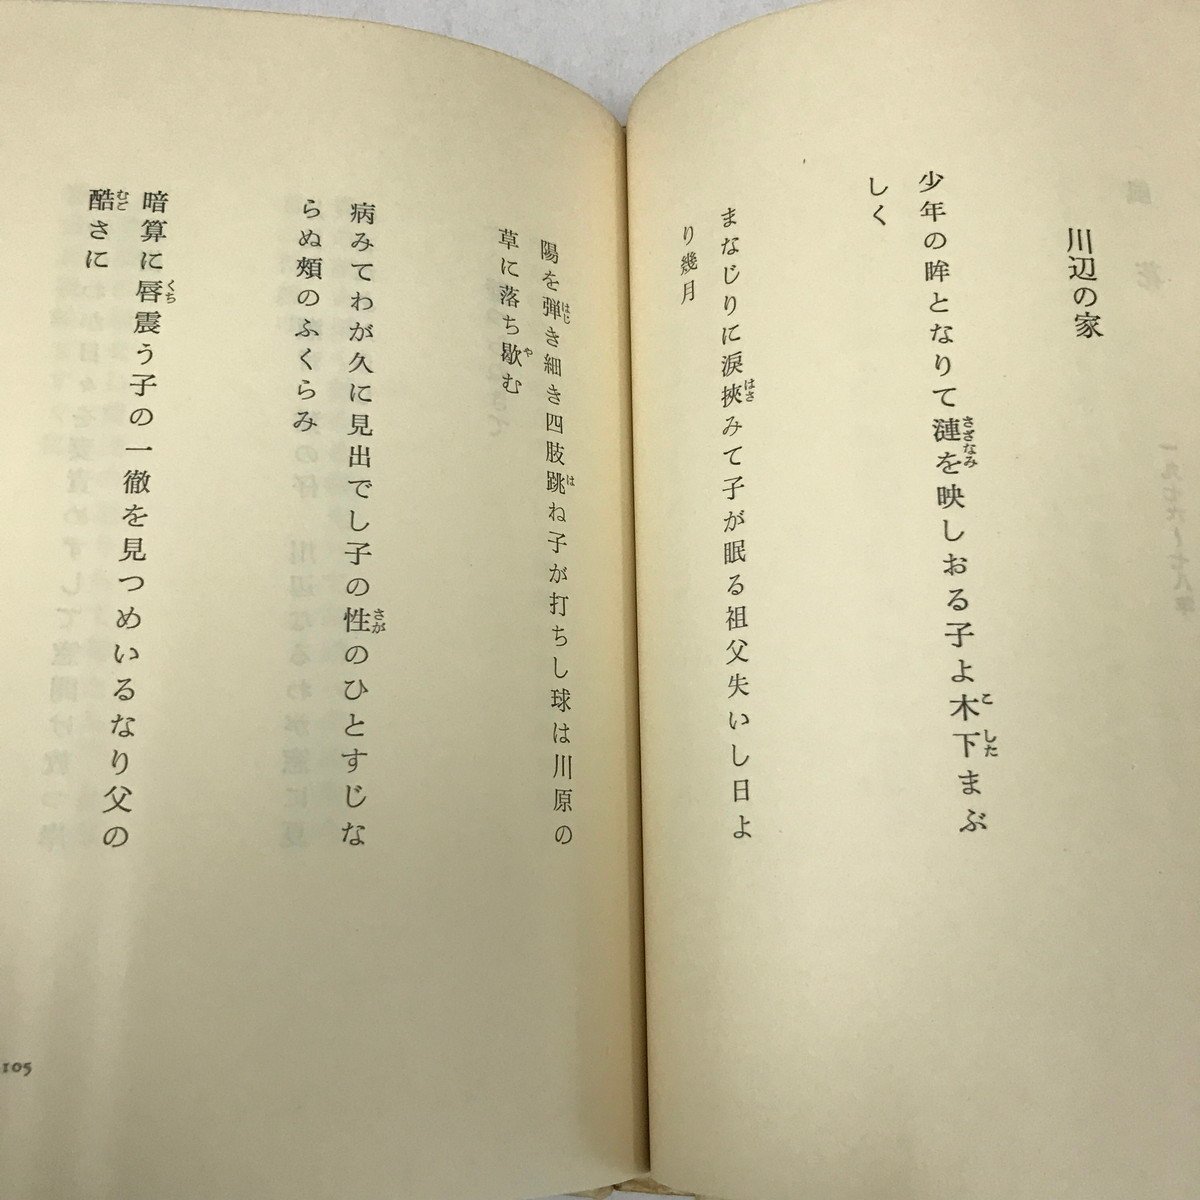 川辺の家
少年の眸となりて漣を映しおる子よ木下まぶ
しく
まなじりに涙挾みて子が眠る祖父失いし日よ
り幾月
陽を弾き細き四肢跳ね子が打ちし球は川原の
草に落ち歇む
病みてわが久に見出でし子の性のひとすじな
らぬ頰のふくらみ
暗算に唇震う子の一徹を見つめいるなり父の
酷さに
105